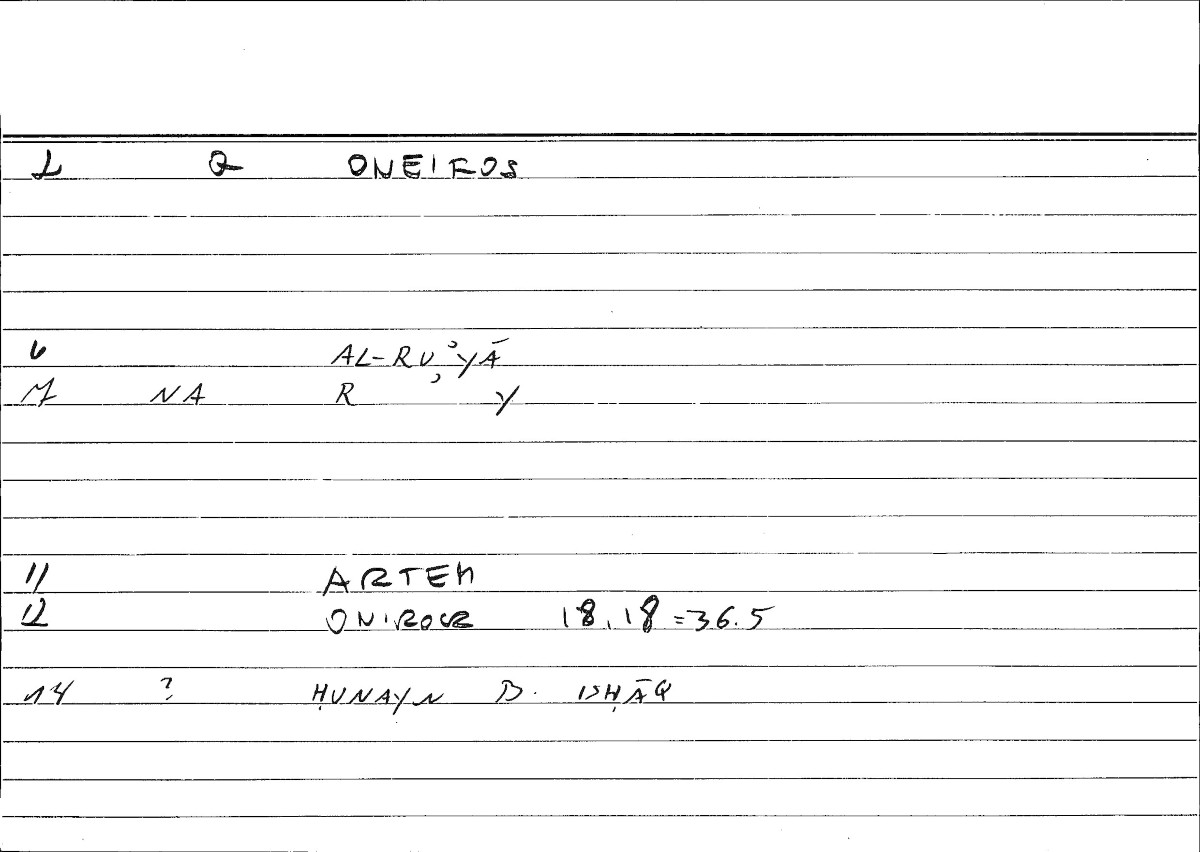 1 Q ONEIROS
6 AL-RUʾYĀ
7 NA R Y
11 ARTEM
12 ONIROCR 18,18 = 36.5
14 ? ḤUNAYN B. ISḤĀQ